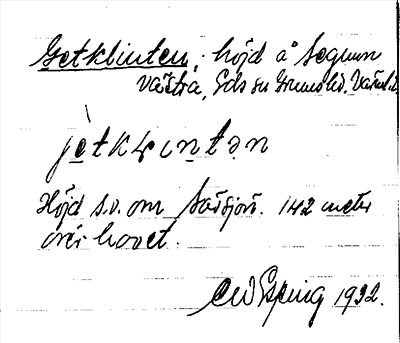 Getklinten, höjd å Segmon
Västra, Eds sn Grums hd. Värml.
jètkɬɩntən
Höjd s.v. om Saxsjön. 142 meter
över havet.
1932.